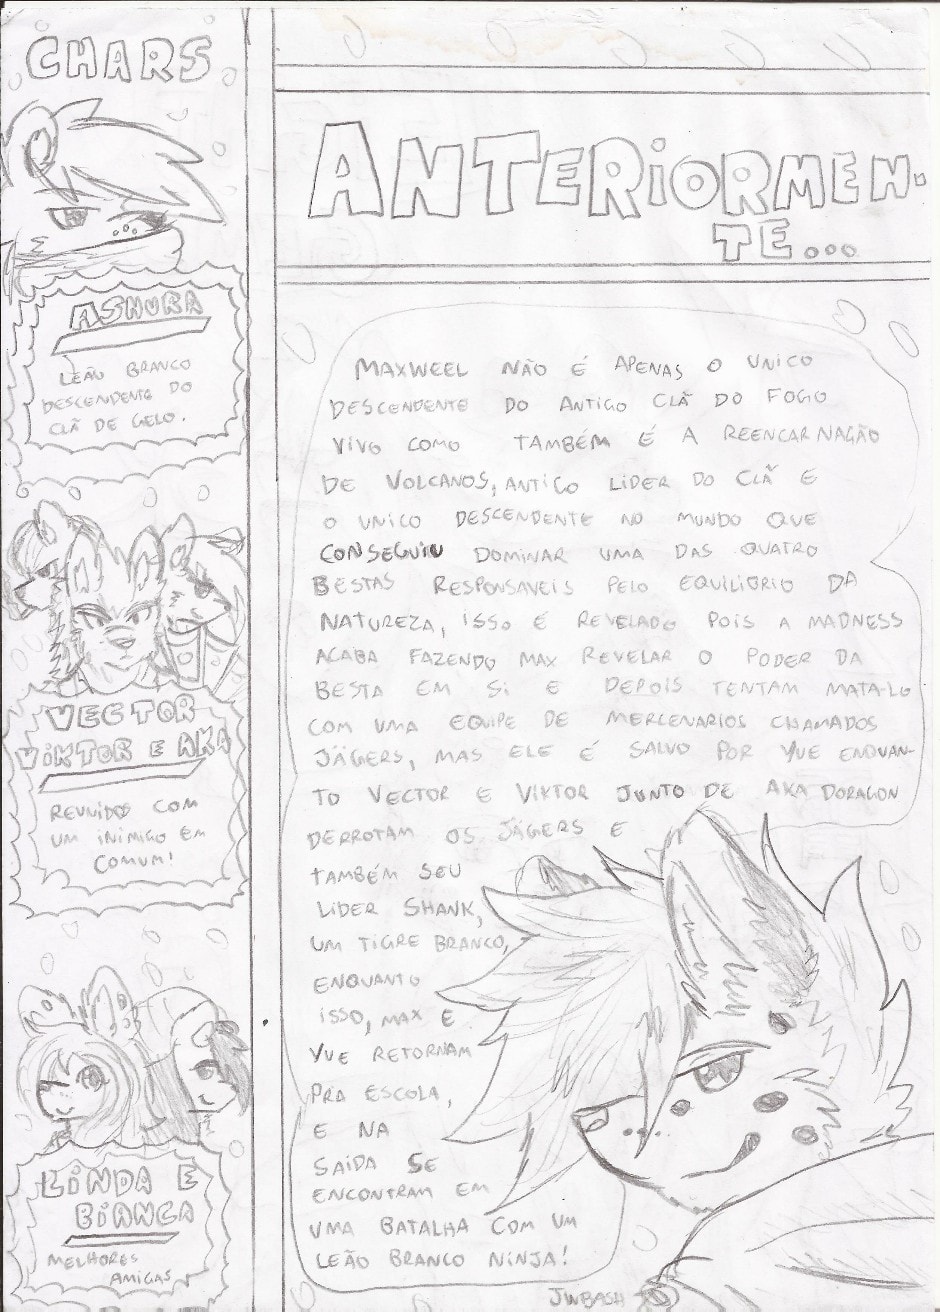 CHARS
ASHURA
LEÃO BRANCO
DESCENDENTE DO
CLÃ DE GELO.
VECTOR
VIKTOR E AKA
REUNIDOS COM
UM INIMIGO EM
COMUM!
LINDA E
BIANCA
MELHORES
AMIGAS
ANTERIORMEN-
TE...
MAXWEEL NÃO É APENAS O UNICO
DESCENDENTE DO ANTIGO CLÃ DO FOGO
VIVO COMO TAMBÉM É A REENCARNAÇÃO
DE VOLCANOS, ANTIGO LIDER DO CLÃ E
O UNICO DESCENDENTE NO MUNDO QUE
CONSEGUIU DOMINAR UMA DAS QUATRO
BESTAS RESPONSAVEIS PELO EQUILIBRIO DA
NATUREZA, ISSO É REVELADO POIS A MADNESS
ACABA FAZENDO MAX REVELAR O PODER DA
BESTA EM SI E DEPOIS TENTAM MATA-LO
COM UMA EQUIPE DE MERCENARIOS CHAMADOS
JÄGERS, MAS ELE É SALVO POR YUE ENQUAN-
TO VECTOR E VIKTOR JUNTO DE AKA DORAGON
DERROTAM OS JÄGERS E
TAMBÉM SEU
LIDER SHANK,
UM TIGRE BRANCO,
ENQUANTO
ISSO, MAX E
YUE RETORNAM
PRA ESCOLA,
E NA
SAIDA SE
ENCONTRAM EM
UMA BATALHA COM UM
LEÃO BRANCO NINJA!
JWBASH